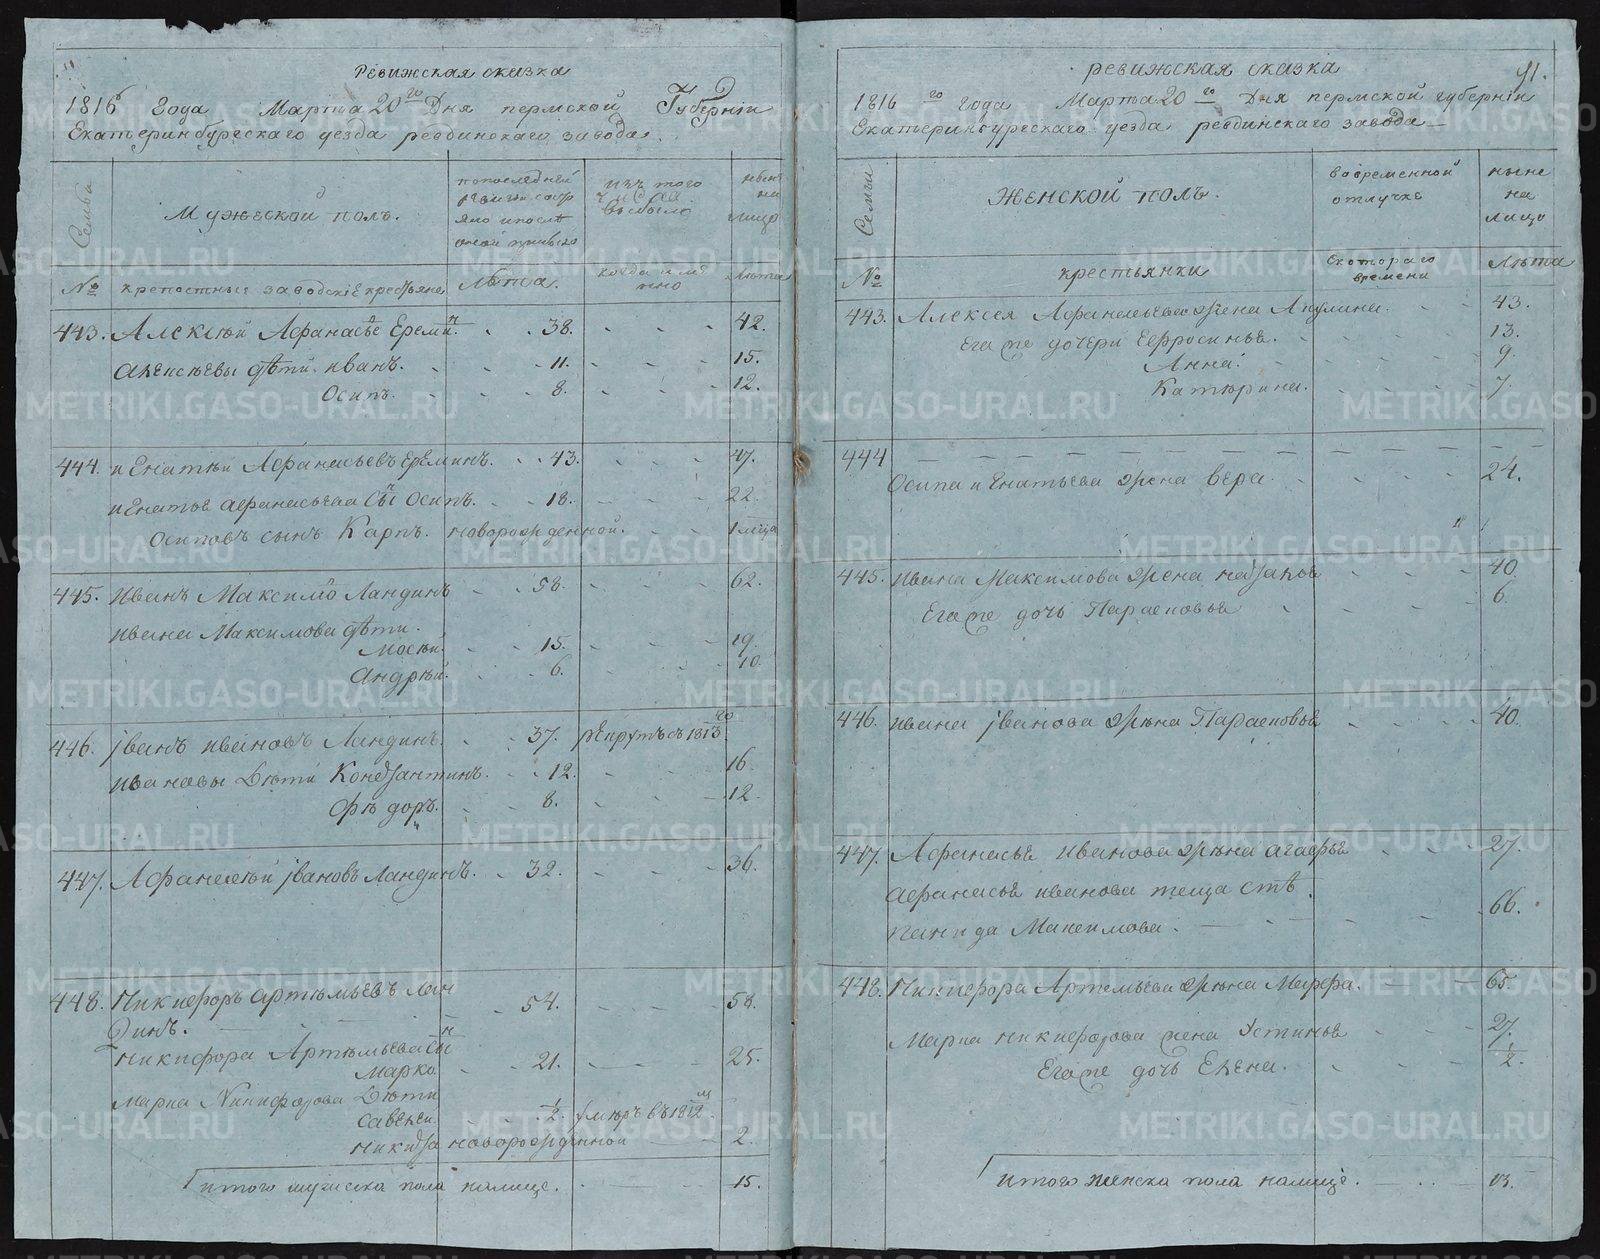 Ревижская сказка
1816 года Марта 20го Дня пермской Губерніи
Екатеринбургскаго уезда ревдинскаго завода.
Семьи
Мужеской полъ.
по последней
ревизіи сост
яло и послѣ
оной прибыло
изъ того
числа
выбыло
ныне
на
лицо
№
крепостные заводскіе крестьяне
Лѣта.
когда имѣ
нно
лѣта
443. Алексѣй Афанасьевъ Ереминъ. 38. 42.
Алексѣевы дѣти. иванъ. 11. 15.
Осипъ. 8. 12.
444. игнатѣй Афанасьевъ Ереминъ. 43. 47.
игнатья афанасьева сынъ осипъ. 18. 22.
осиповъ сынъ Карпъ. новорожденной. 1 мца
445. иванъ Максимо Ландинъ 58. 62.
ивана Максимова дѣти.
мосѣй. 15. 19.
андрѣй. 6. 10.
446. јванъ ивановъ Ландинъ. 37. рекрутъ съ 1813го
ивановы Дѣти Константинъ. 12. 16.
фѣдоръ. 8. 12.
447. Афанасѣй јвановъ Ландинъ. 32. 36.
448. Никифоръ артѣмьевъ Лан
динъ. 54. 58.
никифора Артѣмьева сынъ
марко. 21. 25.
марка Никифорова Дѣти
савелей. ½. умѣръ въ 1812м
никита новорожденной 2.
итого мужеска пола налице. 15.
ревижская сказка
91.
1816го года Марта 20го Дня пермской губерніи
Екатеринбургскаго уезда ревдинскаго завода
Семьи
Женской полъ.
во временной
отлучке
ныне
на
лицо
№
крестьянки
с котораго
времени
Лѣта
443. Алексея Афанасьева жена Акулина. 43.
Егаже дочери Евфросинья. 13.
Анна. 9.
Катѣрина. 7.
444
осипа игнатьева жена вера. 24.
445. ивана Максимова жена настасья 40.
Егаже дочь Парасковья 6.
446. ивана јванова жѣна Парасковья 40.
447. Афанасья иванова жѣна агафья 27.
афанасья иванова теща стѣ
панида Максимова. 66.
448. Никифора Артемьева жѣна Марфа. 65.
Марка никифорова жена Устинья 27.
Егаже дочь Елена. ½.
итого женска пола налице. 13.
METRIKI.GASO-URAL.RU